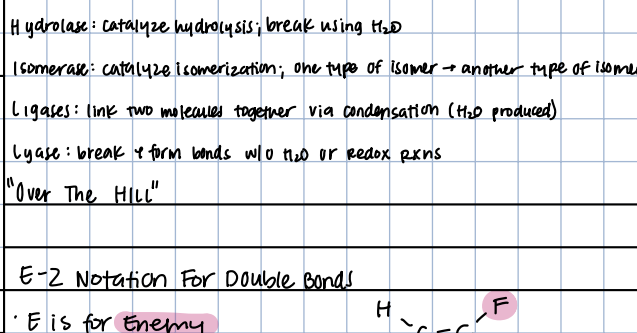 Hydrolase: catalyze hydrolysis; break using H₂O
Isomerase: catalyze isomerization; one type of isomer → another type of isome
Ligases: link two molecules together via condensation (H₂O produced)
Lyase: break & form bonds w/o H₂O or Redox rxns
"Over The HILL"
E-Z Notation For Double Bonds
· E is for Enemy
H F
C C